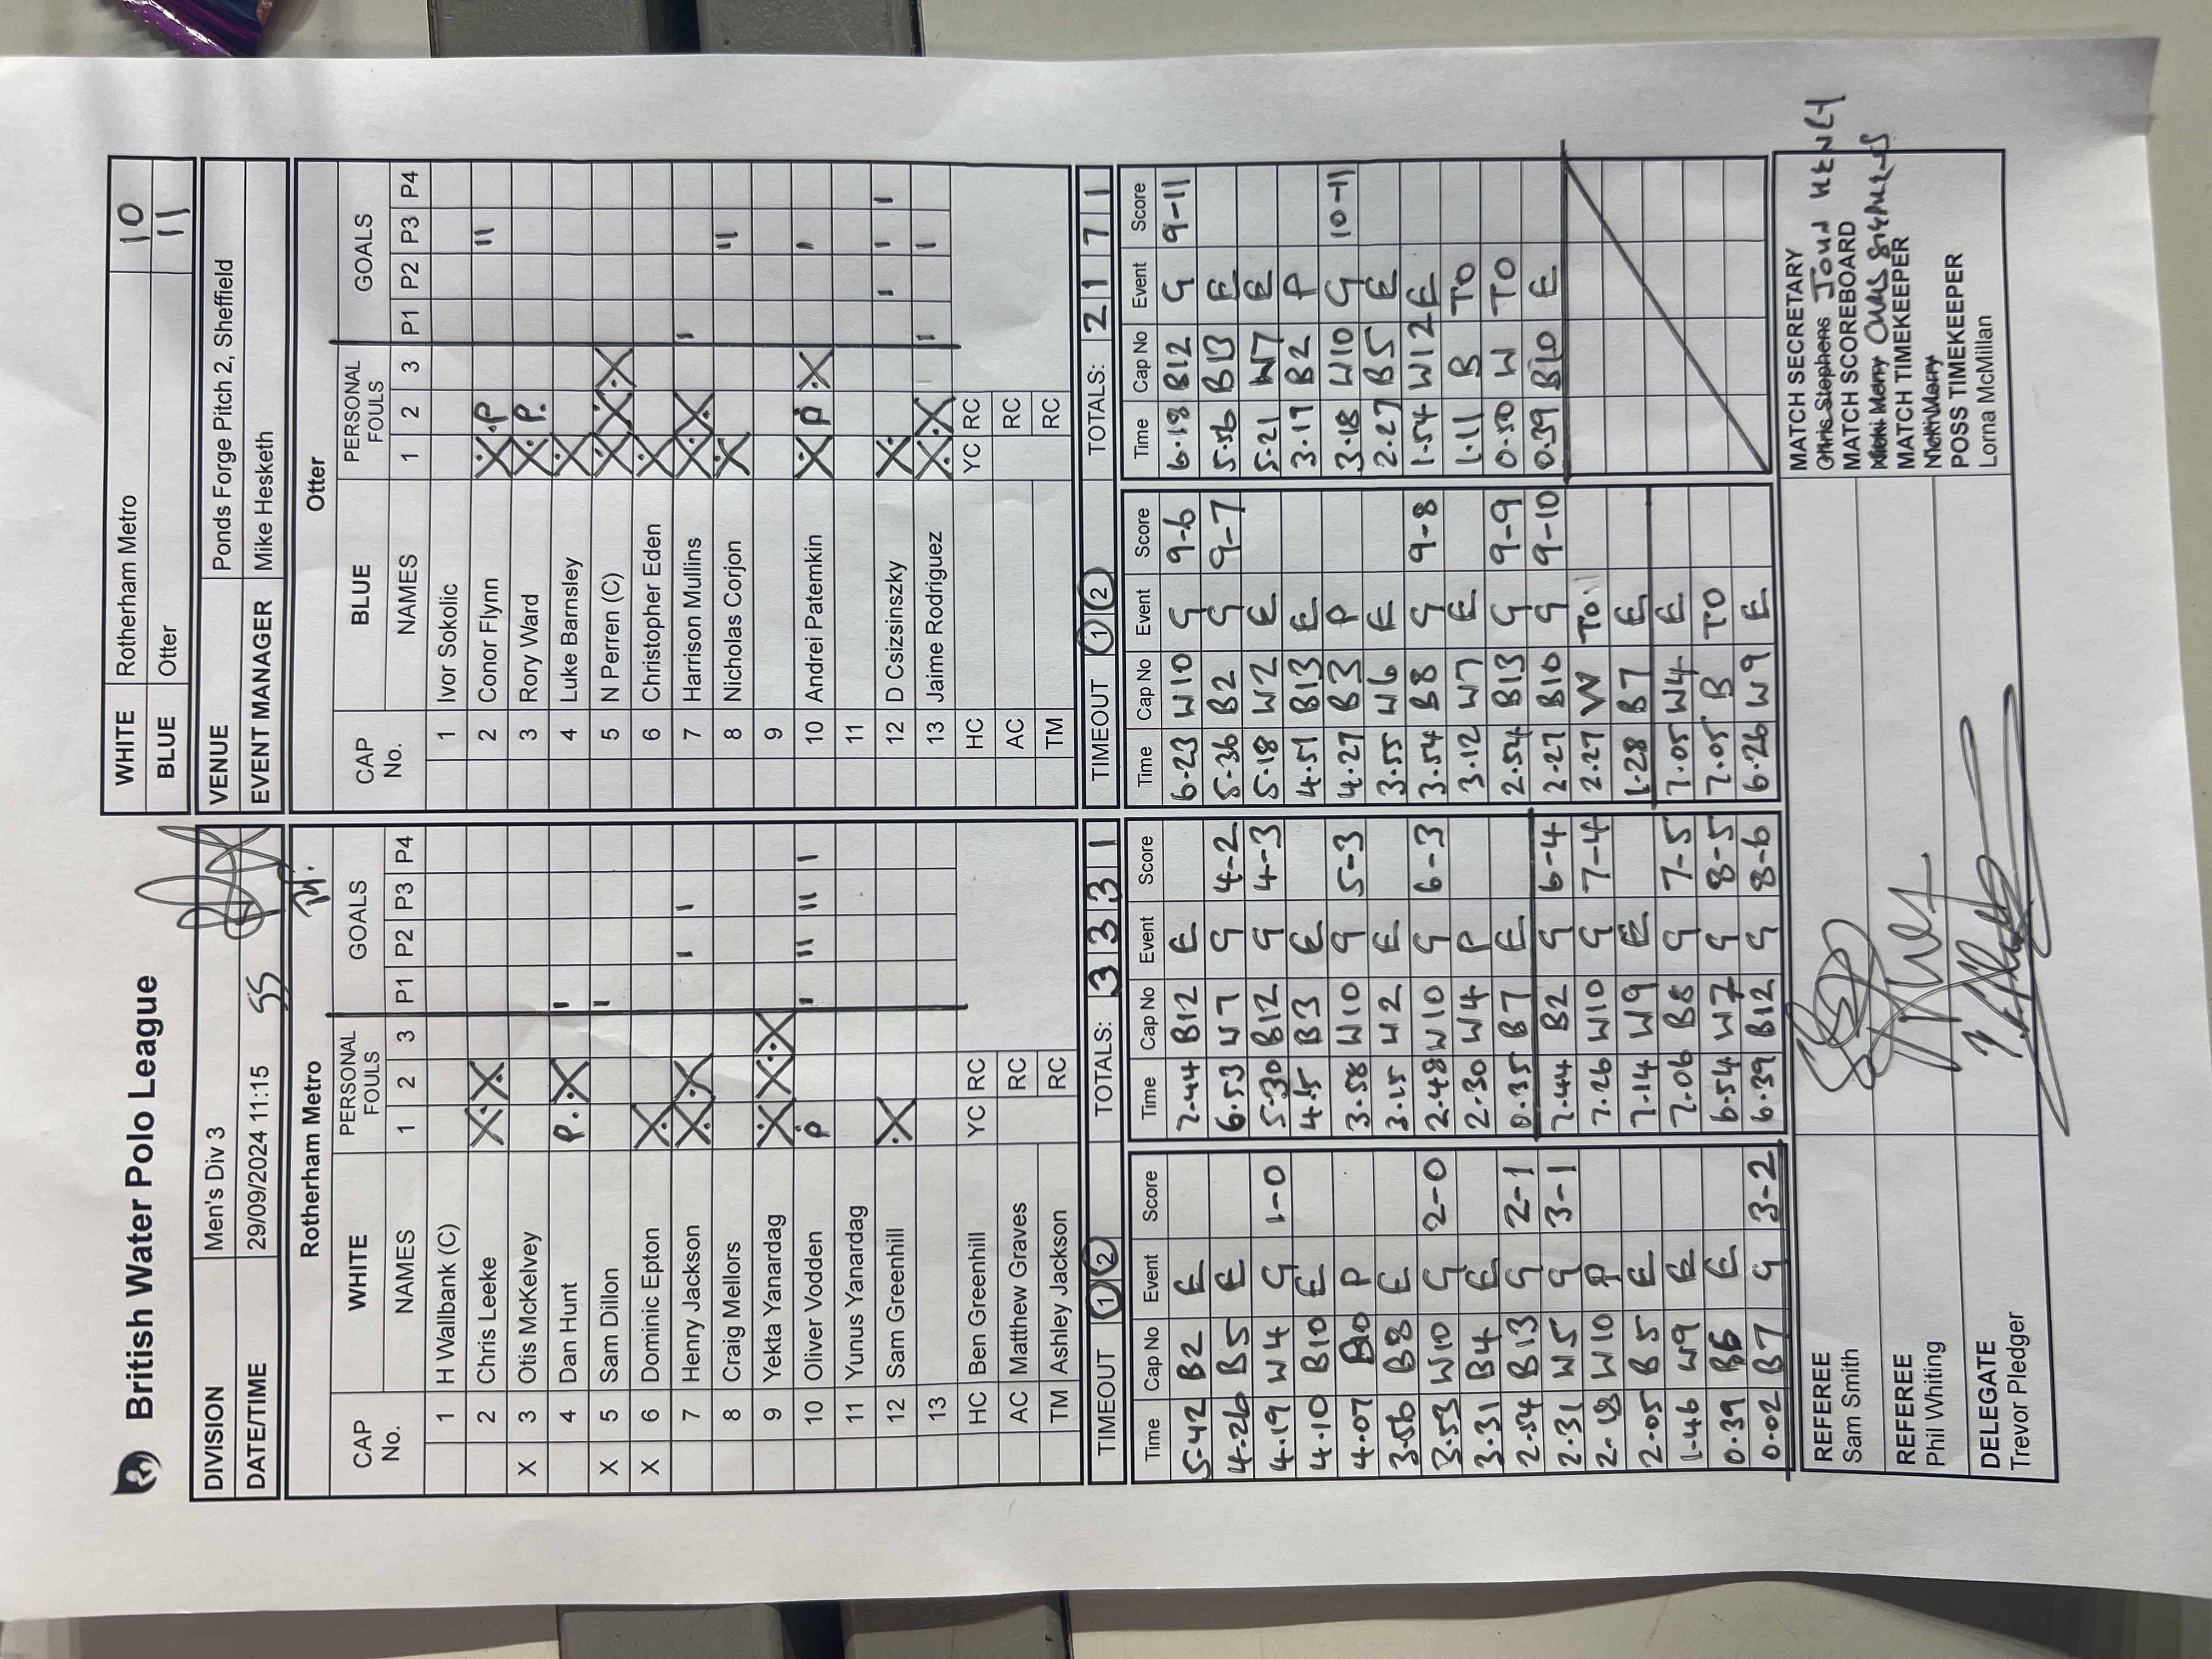 British Water Polo League
WHITE Rotherham Metro 10
BLUE Otter 11
DIVISION Men's Div 3
DATE/TIME 29/09/2024 11:15 SS
VENUE Ponds Forge Pitch 2, Sheffield
EVENT MANAGER Mike Hesketh
Rotherham Metro
CAP No. WHITE NAMES PERSONAL FOULS 1 2 3 GOALS P1 P2 P3 P4
1 H Wallbank (C)
2 Chris Leeke X X
X 3 Otis McKelvey
4 Dan Hunt P X I
X 5 Sam Dillon I
X 6 Dominic Epton X
7 Henry Jackson X X I I
8 Craig Mellors
9 Yekta Yanardag X X X
10 Oliver Vodden P I II II I
11 Yunus Yanardag
12 Sam Greenhill X
13
HC Ben Greenhill YC RC
AC Matthew Graves RC
TM Ashley Jackson RC
TIMEOUT 1 2 TOTALS: 3 3 3 1
Otter
CAP No. BLUE NAMES PERSONAL FOULS 1 2 3 GOALS P1 P2 P3 P4
1 Ivor Sokolic
2 Conor Flynn X P II
3 Rory Ward X P
4 Luke Barnsley X
5 N Perren (C) X X X
6 Christopher Eden X
7 Harrison Mullins X X I
8 Nicholas Corjon X II
9
10 Andrei Patemkin X P X I
11
12 D Csizsinszky X I I I
13 Jaime Rodriguez X X I I
HC YC RC
AC RC
TM RC
TIMEOUT 1 2 TOTALS: 2 1 7 1
Time Cap No Event Score
5.42 B2 E
4.26 B5 E
4.19 W4 G 1-0
4.10 B10 E
4.07 B10 P
3.56 B8 E
3.53 W10 G 2-0
3.31 B4 E
2.54 B13 G 2-1
2.31 W5 G 3-1
2.18 W10 P
2.05 B5 E
1.46 W9 E
0.39 B6 E
0.02 B7 G 3-2
Time Cap No Event Score
7.44 B12 E
6.53 W7 G 4-2
5.30 B12 G 4-3
4.15 B3 E
3.58 W10 G 5-3
3.15 W2 E
2.48 W10 G 6-3
2.30 W4 P
0.35 B7 E
7.44 B2 G 6-4
7.26 W10 G 7-4
7.14 W9 E
7.06 B8 G 7-5
6.54 W7 G 8-5
6.39 B12 G 8-6
Time Cap No Event Score
6.23 W10 G 9-6
5.36 B2 G 9-7
5.18 W2 E
4.51 B13 E
4.27 B3 P
3.55 W6 E
3.54 B8 G 9-8
3.12 W7 E
2.54 B13 G 9-9
2.27 B10 G 9-10
2.27 W TO
1.28 B7 E
7.05 W4 E
7.05 B TO
6.26 W9 E
Time Cap No Event Score
6.18 B12 G 9-11
5.56 B13 E
5.21 W7 E
3.19 B2 P
3.18 W10 G 10-11
2.27 B5 E
1.54 W12 E
1.11 B TO
0.50 W TO
0.39 B10 E
REFEREE
Sam Smith
REFEREE
Phil Whiting
DELEGATE
Trevor Pledger
MATCH SECRETARY
Chris Stephens JOHN HENLY
MATCH SCOREBOARD
Nicki Merry CHRIS STEPHENS
MATCH TIMEKEEPER
Nicki Merry
POSS TIMEKEEPER
Lorna McMillan